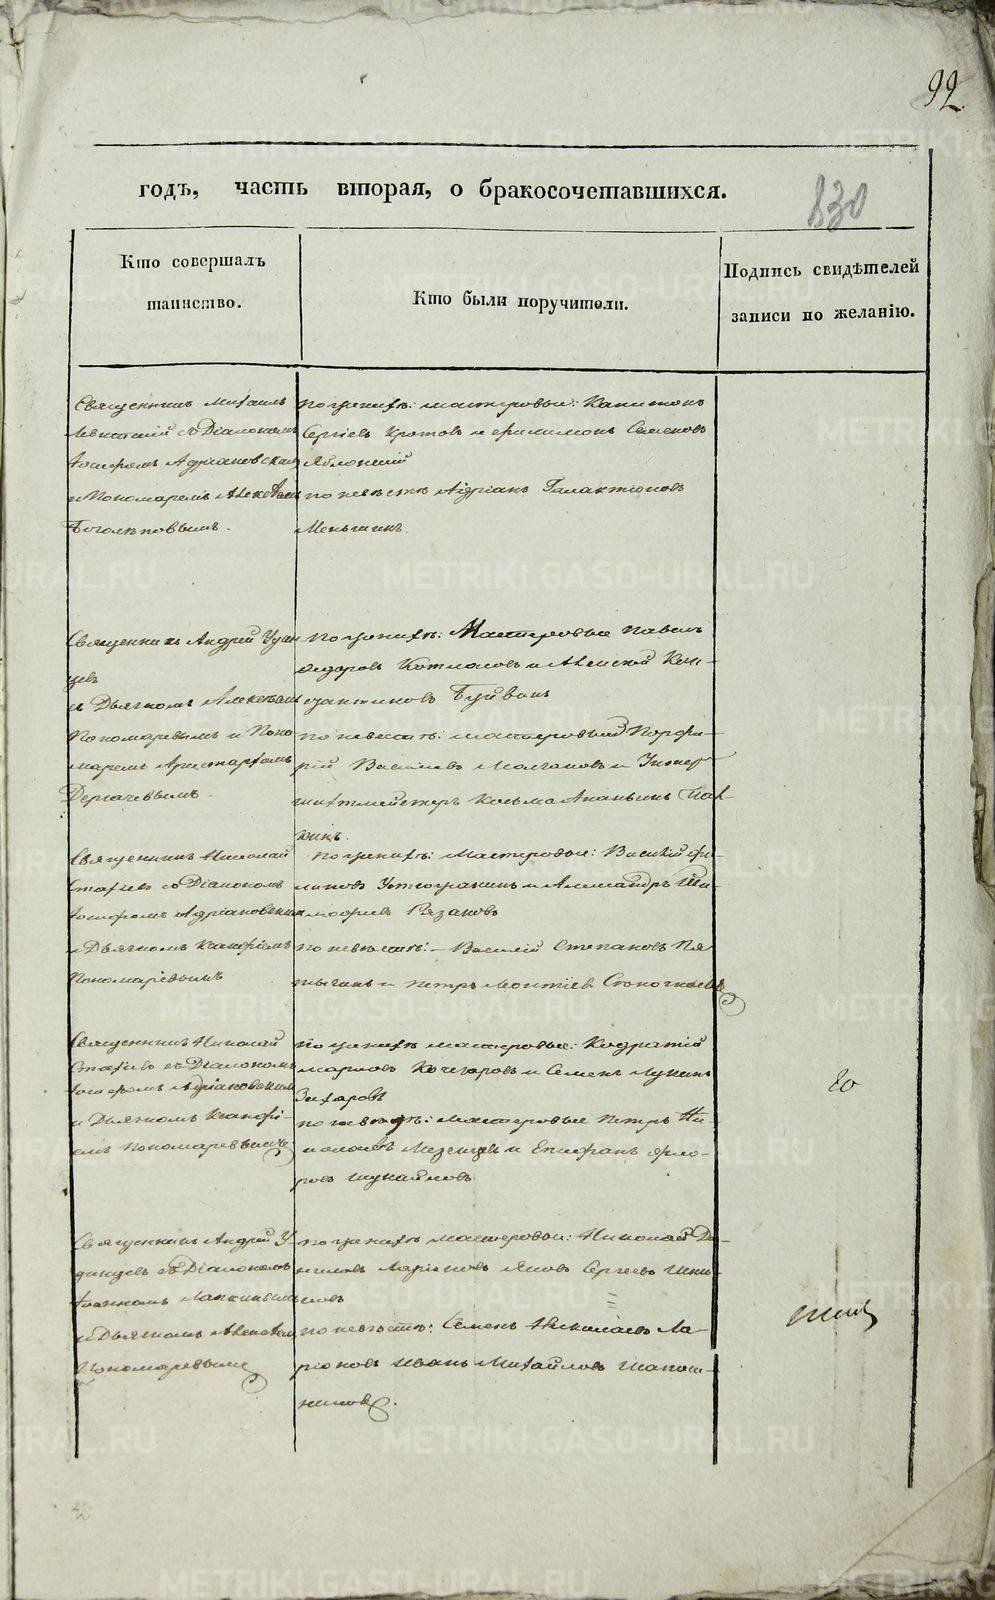 92
годъ, часть вторая, о бракосочетавшихся.
830
Кто совершалъ
таинство.
Кто были поручители.
Подпись свидѣтелей
записи по желанію.
Священникъ Михаилъ
Левитскій съ Діакономъ
Іосифомъ Адріановскимъ
и Пономаремъ Алексѣемъ
Боголѣповымъ.
по женихѣ: мастеровые: Капитонъ
Сергіевъ Кротовъ и Филимонъ Семеновъ
Яблонскій
по невѣстѣ Адріанъ Галактіоновъ
Меньшинъ.
Священникъ Андрей Удин
цевъ
съ Дьячкомъ Алексѣемъ
Пономаревымъ и Поно
маремъ Аристархомъ
Дергачевымъ.
по женихѣ: Мастеровые Павелъ
Федоровъ Котласовъ и Алексѣй Кон-
стантиновъ
по невѣстѣ: мастеровый Порфи-
рій Васильевъ Молчановъ и Унтер
шихтмейстеръ Косьма Ананьинъ
Священникъ Николай
съ Діакономъ
Іосифомъ Адріановскимъ
и Дьячкомъ
Пономаревымъ
по женихѣ: Мастеровые: Василій Фи-
липовъ Устюжанинъ и Александръ Ти-
мофиевъ Рязановъ
по невѣстѣ: Василій Степановъ Пя
тыгинъ и Петръ Леонтіевъ Стоногинъ
Священникъ Николай
съ Діакономъ
Іосифомъ Адріановскимъ
и Дьячкомъ
Пономаревымъ
по женихѣ мастеровые: Кодратій
Марковъ Кочегаровъ и Семенъ Лукинъ
Захаровъ
по невѣстѣ: Мастеровые Петръ Ни-
колаевъ Мезенцевъ и Епифанъ Фло-
ровъ
Священникъ Андрей У-
динцевъ съ Діакономъ
Іоанномъ Лапинымъ
и Дьячкомъ Алексѣемъ
Пономаревымъ
по женихѣ мастеровые: Николай Да-
ниловъ Ларіоновъ Яковъ Сергеевъ
по невѣстѣ: Семенъ Николаевъ Ла-
ріоновъ Иванъ Михайловъ Шапош-
никовъ.
METRIKI.GASO-URAL.RU